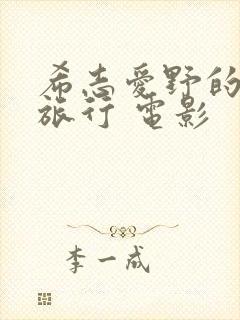 希志愛野的
旅行 電影
李一成